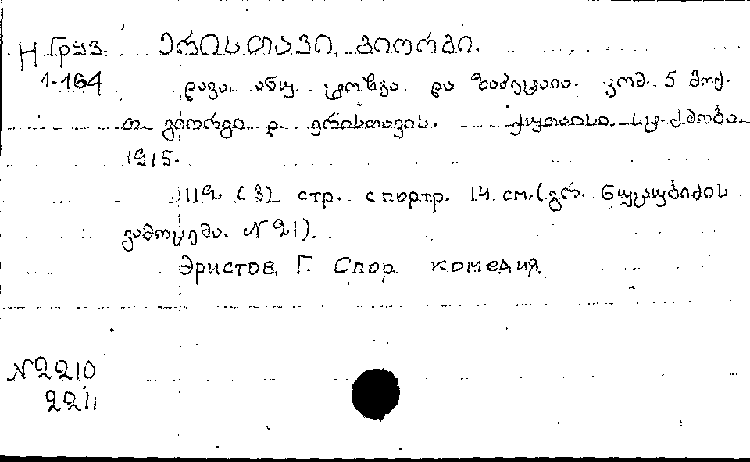 Н Груз. ერისთავი, გიორგი.
1-164 დავა ანუ ტოჩკა და ზაპეტაია. კომ. 5 მოქ.
თ. გიორგი დ. ერისთავის. ქუთაისი. სტ. ქმობა
1915.
112 (3) стр. с портр. 14 см. (გრ.
გამოცემა. N 21).
Эристов, Г. Спор. комедия.
N 2210
2211